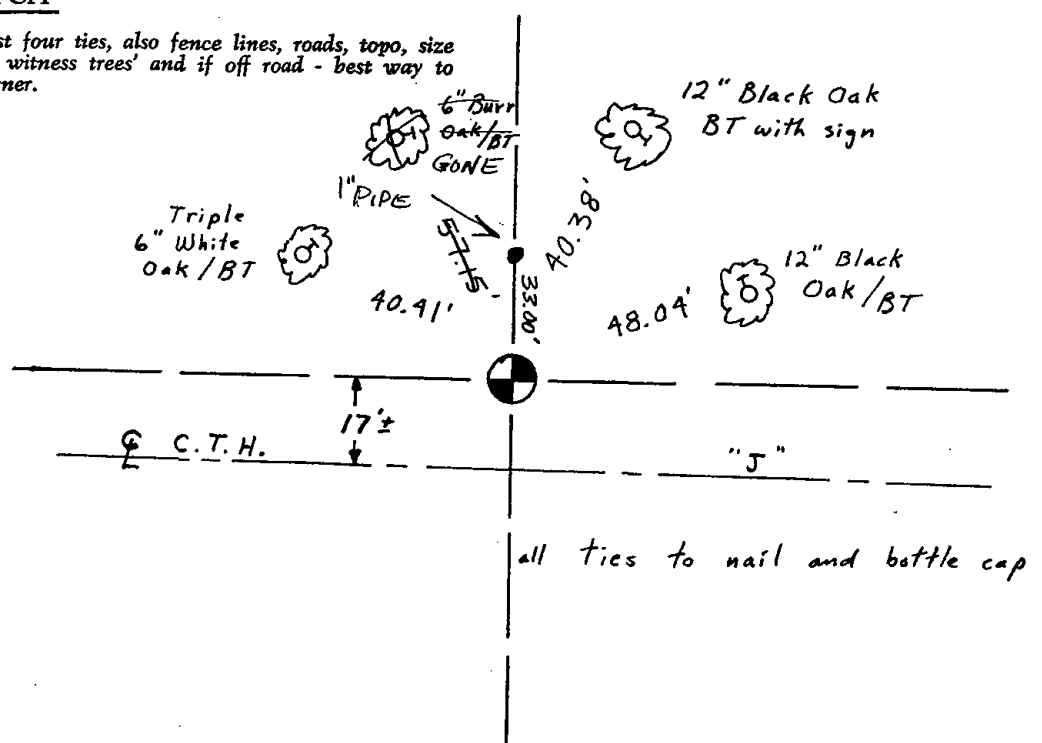 st four ties, also fence lines, roads, topo, size
witness trees' and if off road - best way to
ner.
6" Burr
Oak/BT
GONE
12" Black Oak
BT with sign
1" PIPE
Triple
6" White
Oak/BT
57.15'
40.38'
12" Black
Oak/BT
40.41'
33.00'
48.04'
17'±
℄ C.T.H.
"J"
all ties to nail and bottle cap